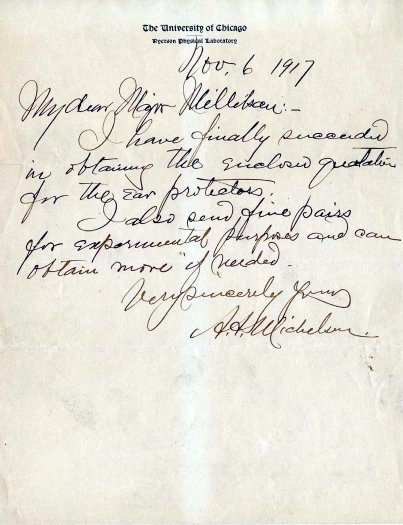 The University of Chicago
Ryerson Physical Laboratory
Nov. 6 1917
My dear Major Millikan:-
I have finally succeeded
in obtaining the enclosed quotation
for the Ear protectors.
I also send five pairs
for experimental purposes and can
obtain more if needed
Very sincerely yours
A. A. Michelson.